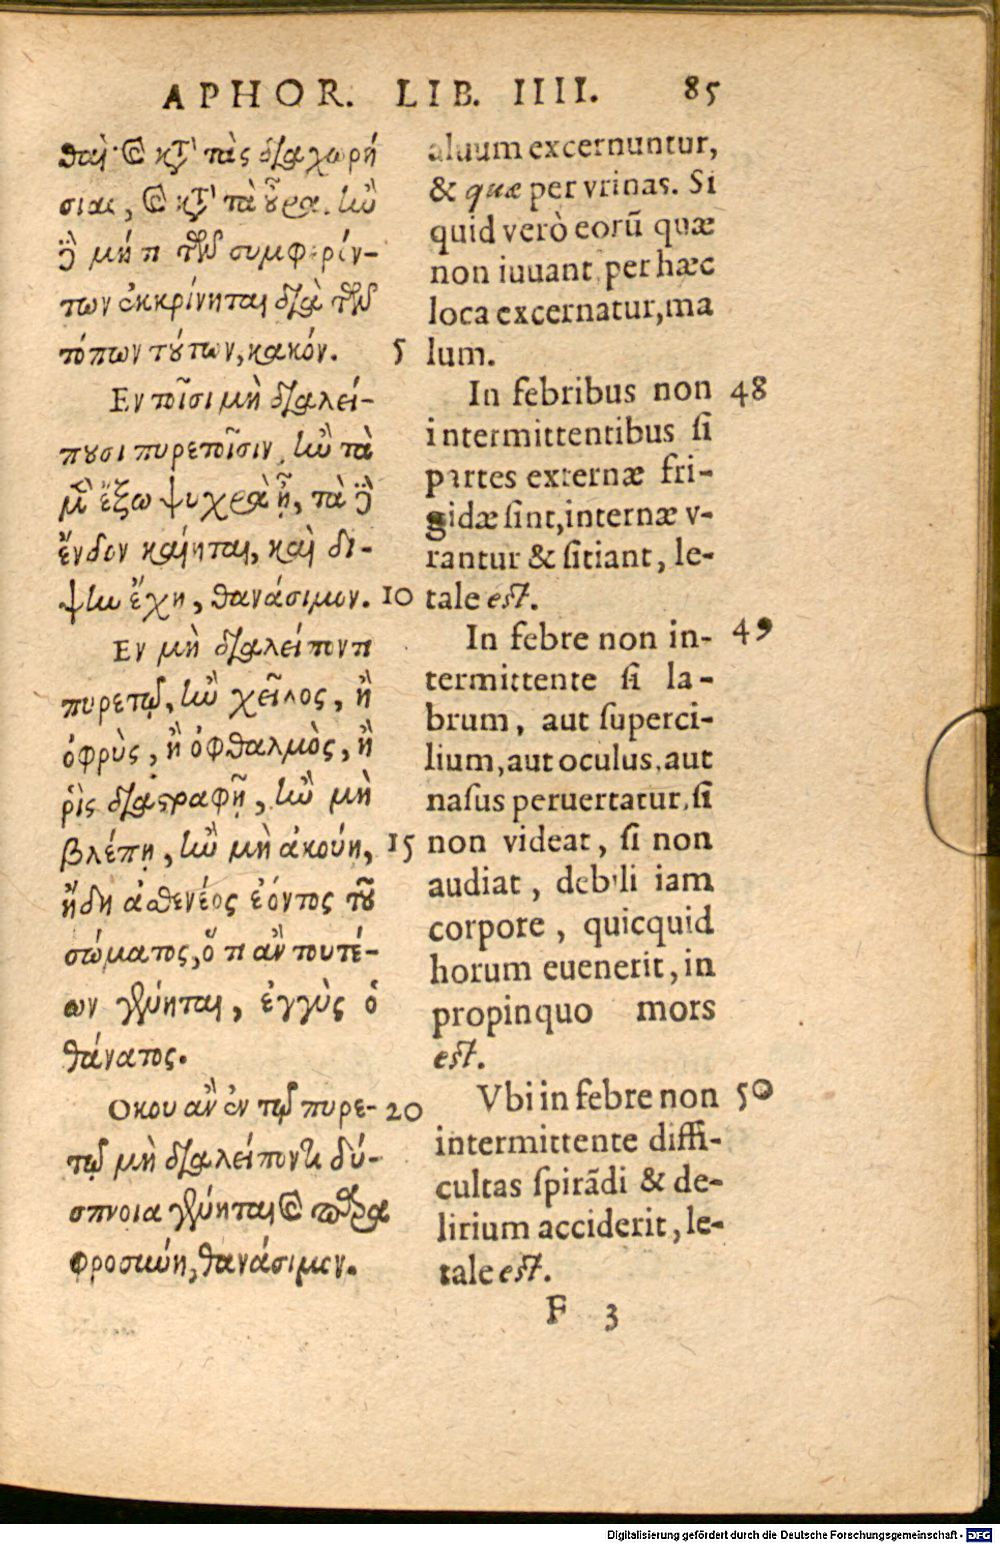 APHOR. LIB. IIII. 85
θαι· καὶ κατὰ τὰς διαχωρή
σιας, καὶ κατὰ τὰ οὖρα. ἢν
δὲ μή τι τῶν συμφερόν-
των ἐκκρίνηται διὰ τῶν
τόπων τούτων, κακόν. 5
Εν τοῖσι μὴ διαλεί-
πουσι πυρετοῖσιν, ἢν τὰ
μὲν ἔξω ψυχρὰ ᾖ, τὰ δὲ
ἔνδον καίηται, καὶ δί-
ψην ἔχη, θανάσιμον. 10
Εν μὴ διαλείποντι
πυρετῷ, ἢν χεῖλος, ἢ
ὀφρὺς, ἢ ὀφθαλμὸς, ἢ
ῥὶς διαστραφῇ, ἢν μὴ
βλέπῃ, ἢν μὴ ἀκούη, 15
ἤδη ἀσθενέος ἐόντος τοῦ
σώματος, ὅ τι ἂν τουτέ-
ων γένηται, ἐγγὺς ὁ
θάνατος.
Οκου ἂν ἐν τῷ πυρε- 20
τῷ μὴ διαλείποντι δύ-
σπνοια γένηται καὶ παρα
φροσύνη, θανάσιμον.
aluum excernuntur,
& quæ per vrinas. Si
quid verò eorū quæ
non iuuant per hæc
loca excernatur, ma
lum.
In febribus non 48
intermittentibus ſi
partes externæ fri-
gidæ ſint, internæ v-
rantur & ſitiant, le-
tale eſt.
In febre non in- 49
termittente ſi la-
brum, aut ſuperci-
lium, aut oculus, aut
naſus peruertatur, ſi
non videat, ſi non
audiat, debili iam
corpore, quicquid
horum euenerit, in
propinquo mors
eſt.
Vbi in febre non 50
intermittente diffi-
cultas ſpirādi & de-
lirium acciderit, le-
tale eſt.
F 3
Digitalisierung gefördert durch die Deutsche Forschungsgemeinschaft - DFG